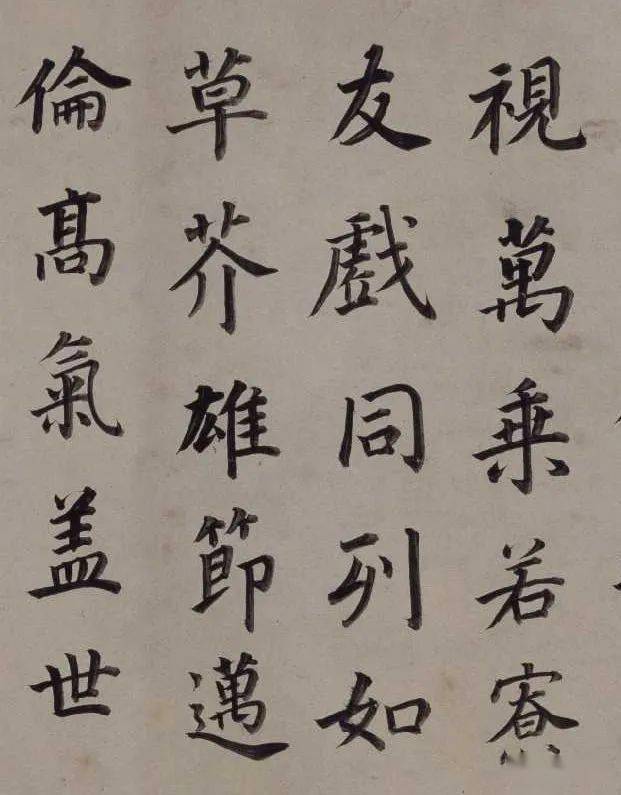 視萬乗若寮
友戲同列如
草芥雄節邁
倫髙氣盖世